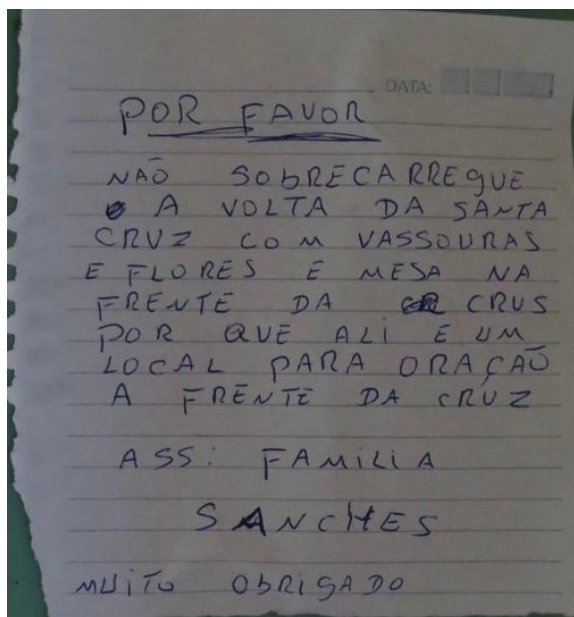 DATA:
POR FAVOR
NÃO SOBRECARREGUE
A VOLTA DA SANTA
CRUZ COM VASSOURAS
E FLORES E MESA NA
FRENTE DA CRUS
POR QUE ALI E UM
LOCAL PARA ORAÇÃO
A FRENTE DA CRUZ
ASS: FAMILIA
SANCHES
MUITO OBRIGADO